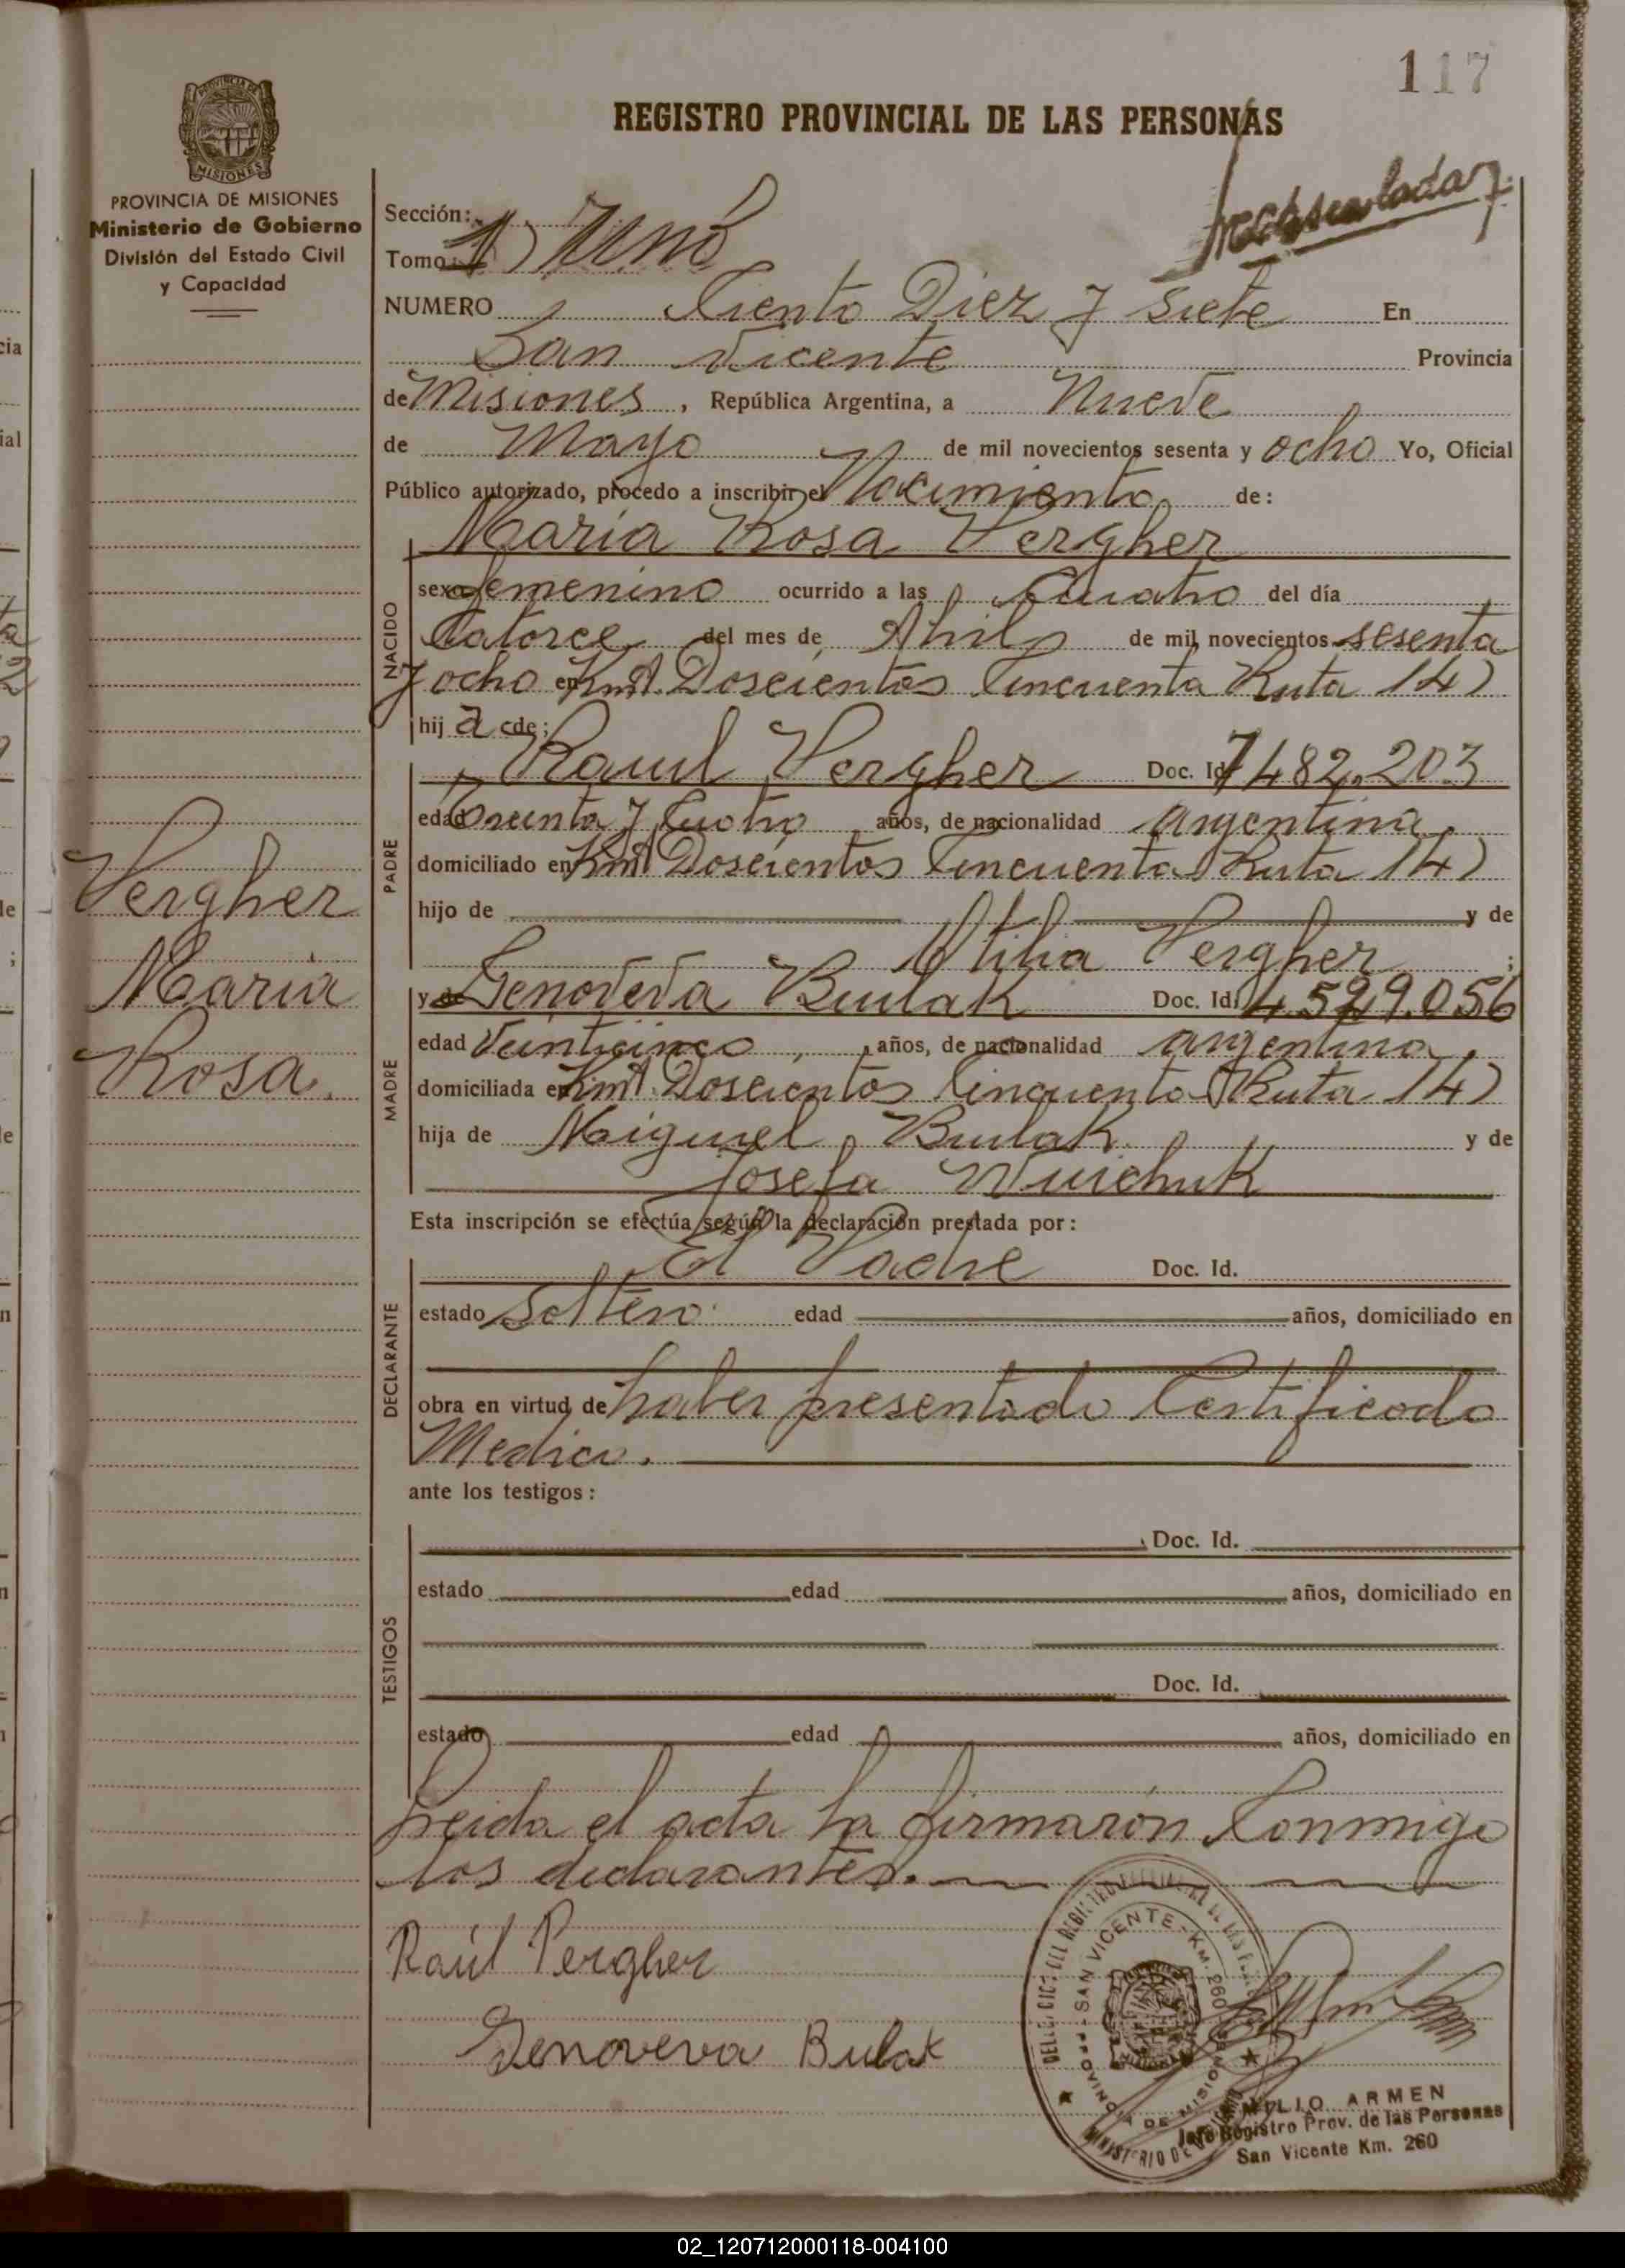 117
REGISTRO PROVINCIAL DE LAS PERSONAS
PROVINCIA DE MISIONES
Ministerio de Gobierno
División del Estado Civil
y Capacidad
Sección:
Tomo: 1) Uno
NUMERO Ciento Diez y siete En
San Vicente Provincia
de Misiones, República Argentina, a Nueve
de Mayo de mil novecientos sesenta y ocho Yo, Oficial
Público autorizado, procedo a inscribir el Nacimiento de:
Maria Rosa Pergher
NACIDO
sexo femenino ocurrido a las Cuatro del día
Catorce del mes de Abril de mil novecientos sesenta
y ocho en Kmt. Doscientos Cincuenta Ruta 14)
hij a de:
PADRE
Raul Pergher Doc. Id. 7482.203
edad Treinta y Cuatro años, de nacionalidad argentina
domiciliado en Kmt Doscientos Cincuenta Ruta 14)
hijo de y de
Pergher ;
MADRE
y de Genoveva Bulak Doc. Id.
edad Veinticinco, años, de nacionalidad argentina,
domiciliada en Kmt. Doscientos Cincuenta Ruta 14)
hija de Miguel Bulak y de
Josefa
Esta inscripción se efectúa según la declaración prestada por:
DECLARANTE
El Padre Doc. Id.
estado Soltero edad años, domiciliado en
obra en virtud de haber presentado Certificado
Medico.
ante los testigos:
TESTIGOS
Doc. Id.
estado edad años, domiciliado en
Doc. Id.
estado edad años, domiciliado en
Leida el acta la firmarón Conmigo
los declarantes.
Raúl Pergher
Genoveva Bulak
Pergher
Maria
Rosa.
SAN VICENTE - KM. 260
PROVINCIA DE MISIONES
ARMEN
Jefe Registro Prov. de las Personas
San Vicente Km. 260
02_120712000118-004100